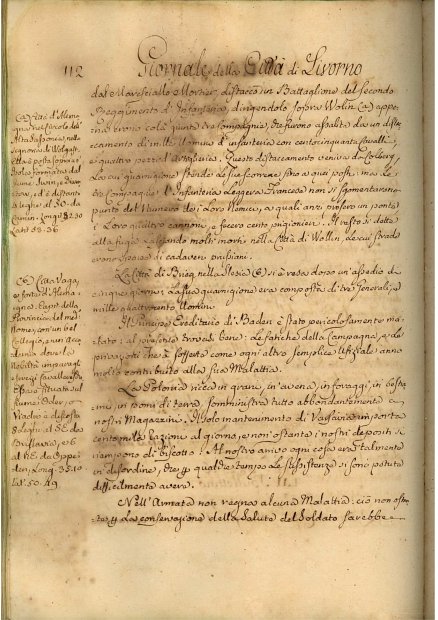 112 Giornale della Città di Livorno
dal Maresciallo Mortier, distaccò un Battaglione del secondo
Reggimento d'Infanteria, dirigendolo sopra Wolin (a) appe
na erano colà giunte tre Compagnie, che furono assalite da un distac
camento di mille Uomini d'infanteria con centocinquanta Cavalli,
e quattro pezzi d'Artiglieria. Questo distaccamento veniva da Colberg,
La cui guarnigione stende le sue scorrerie sino a quei posti: ma Le
tre Compagnie d'Infanteria Leggera Francese non si sgomentarono
punto del Numero dei Loro Nemici, a quali anzi presero un ponte
i Loro quattro cannoni, e fecero cento prigionieri. Il resto si dette
alla fuga lasciando molti morti nella Città di Wollin, Le cui strade
erono sparse di cadaveri prussiani.
La Città di Brieg nella Slesia (b) si è resa dopo un assedio di
cinque giorni: La sua guarnigione era composta di tre Generali, e
mille quattrocento Uomini.
Il Principe Ereditario di Baden è stato pericolosamente ma
lato: al presente trovasi bene: Le fatiche della Campagna, e le
privazioni che à sofferte come ogni altro semplice Ufiziale anno
molto contribuito alla sua Malattia.
La Polonia ricca in grani, in avena, in foraggi, in bestia
mi, in pomi di terra, somministra tutto abbondantemente a
nostri Magazzini. Il solo mantenimento di Varsavia importa
cento mille razioni al giorno, e non ostante i nostri depositi si
riempono di biscotto: Al nostro arrivo ogni cosa era talmente
in disordine, che qualche tempo Le sussistenze si sono potute
difficilmente avere.
Nell'Armata non regna alcuna Malattia: ciò non ostan
te La conservazione della Salute del Soldato farebbe
(a) Città d'Alema
gna nel Circolo dell'
Alta Sassonia nella
signoria di Wolgast,
ella è posta sopra un
Isola formata dal
fiume
e
Long. 32.30
Lat. 53.36
(b) Città Vaga,
e forte d'Alema
gna, Capit. della
Provincia del med:
nome, con un bel
Collegio, e un Acca
demia dove la
Nobiltà impara gli
esercizi Cavallereschi
È essa situata sul
fiume Oder, o
Viadro, e distante
8 leghe al SE da
Breslavia, e 6
al NE da Oppe
len, Long. 35.10
Lat. 50.49